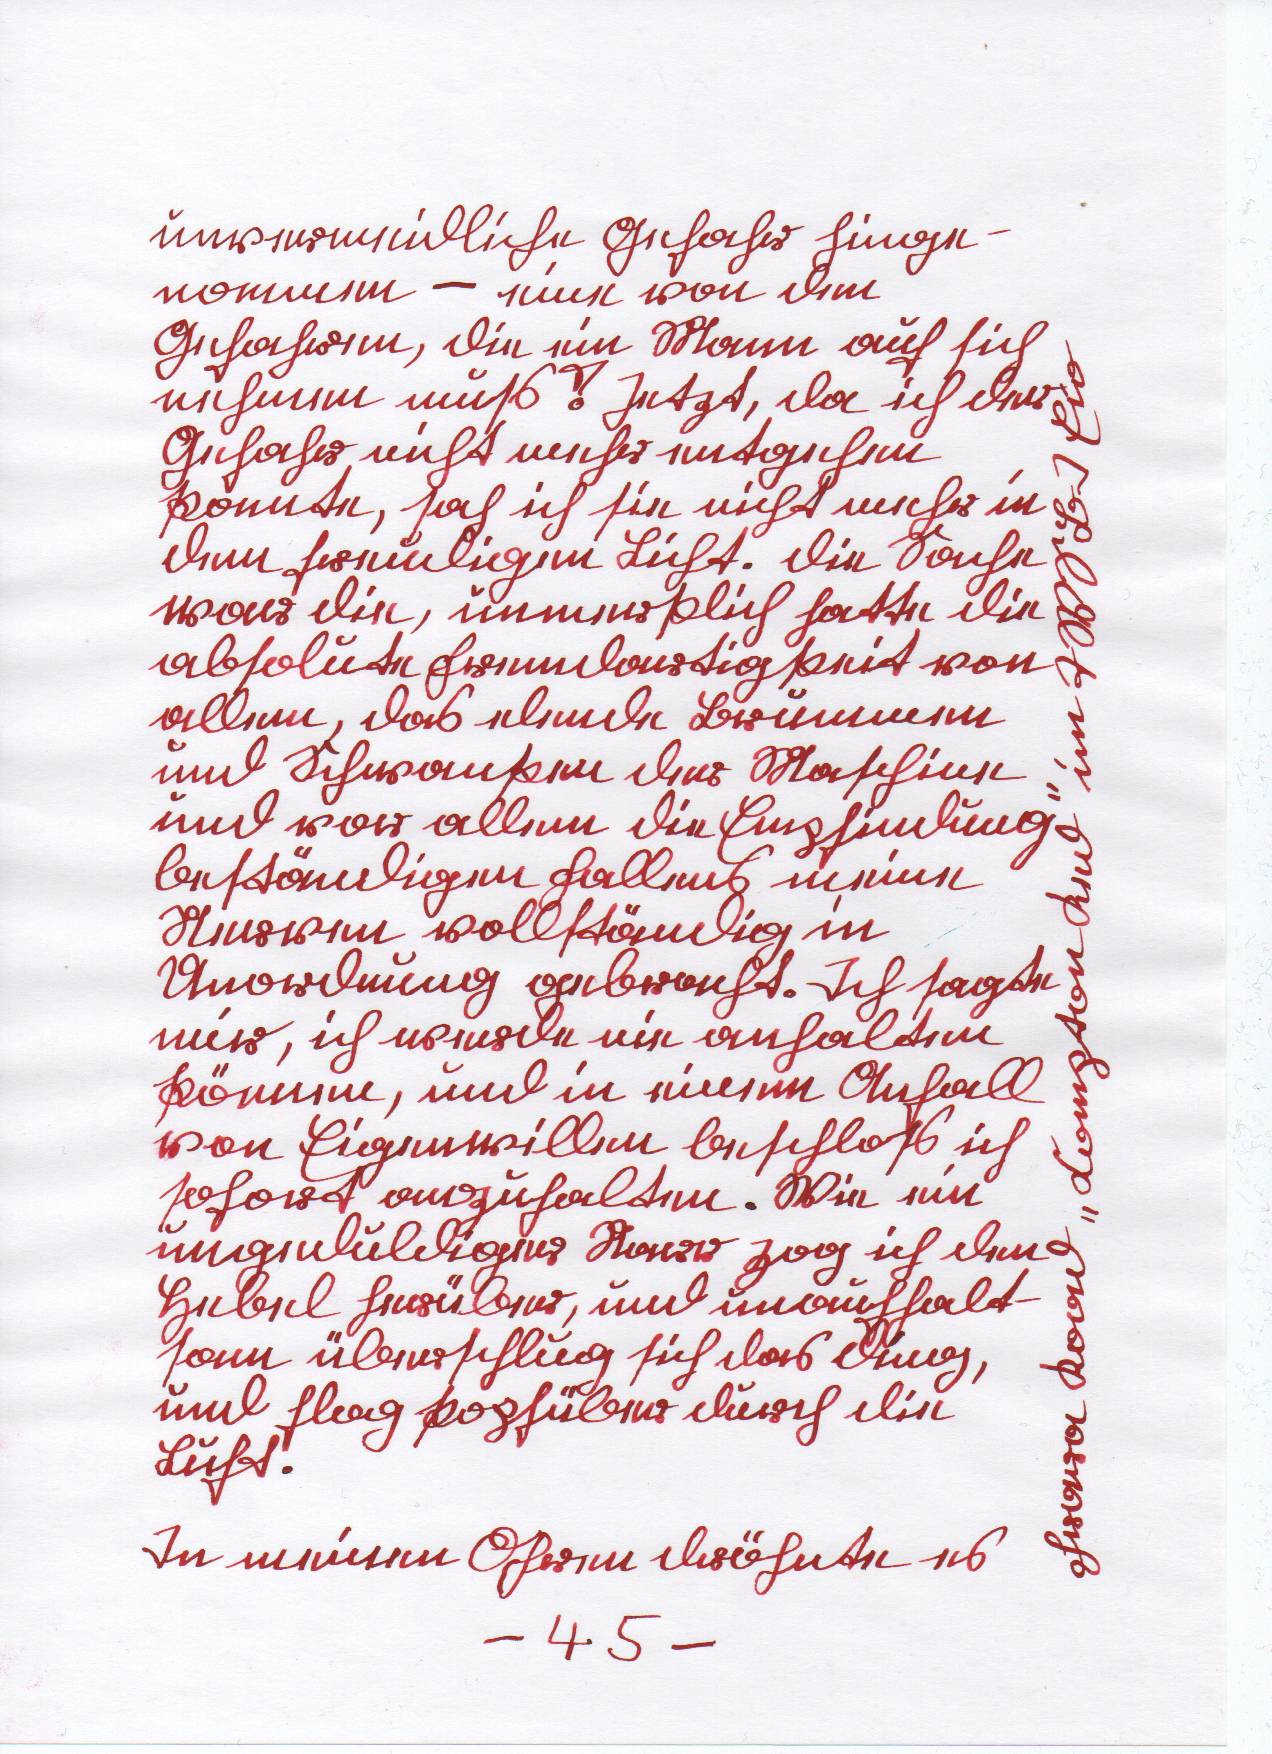 unvermeidliche Gefahr hinge-
nommen — eine von den
Gefahren, die ein Mann auf sich
nehmen muß! Jetzt, da ich der
Gefahr nicht mehr entgehen
konnte, sah ich sie nicht mehr in
dem freudigen Licht. Die Sache
war die, unmerklich hatte die
absolute Fremdartigkeit von
allem, das elende Brummen
und Schwanken der Maschine
und vor allem die Empfindung
beständigen Fallens meine
Nerven vollständig in
Unordnung gebracht. Ich sagte
mir, ich werde nie anhalten
können, und in einem Anfall
von Eigenwillen beschloß ich
sofort anzuhalten. Wie ein
ungeduldiger Narr zog ich den
Hebel herüber, und unaufhalt-
sam überschlug sich das Ding,
und flog kopfüber durch die
Luft!
In meinen Ohren dröhnte es
- 45 -